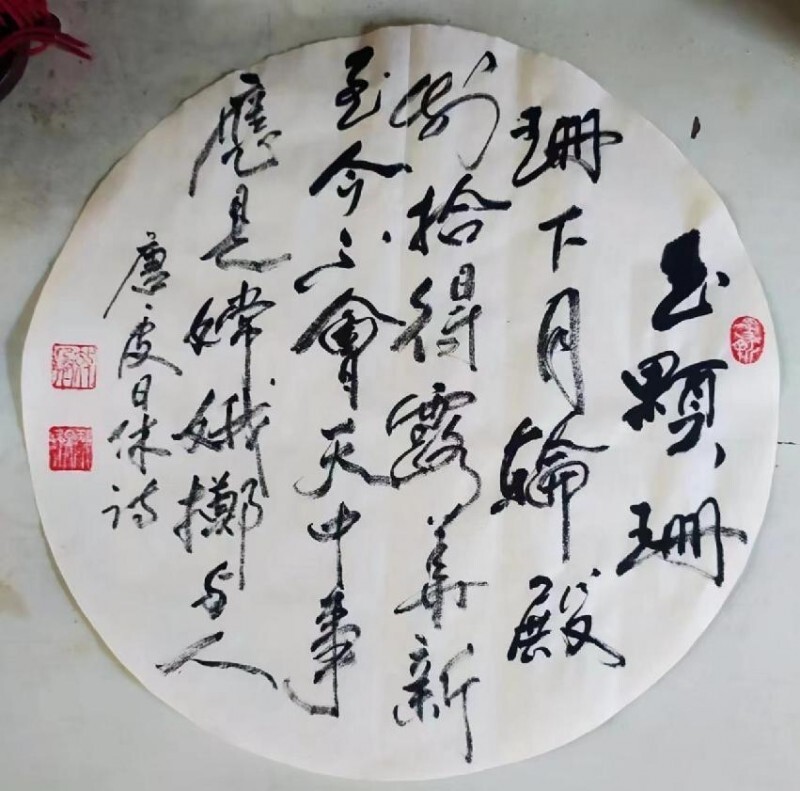 玉顆珊
珊下月輪殿
前拾得露華新
至今不會天中事
應是嫦娥擲与人
唐皮日休诗